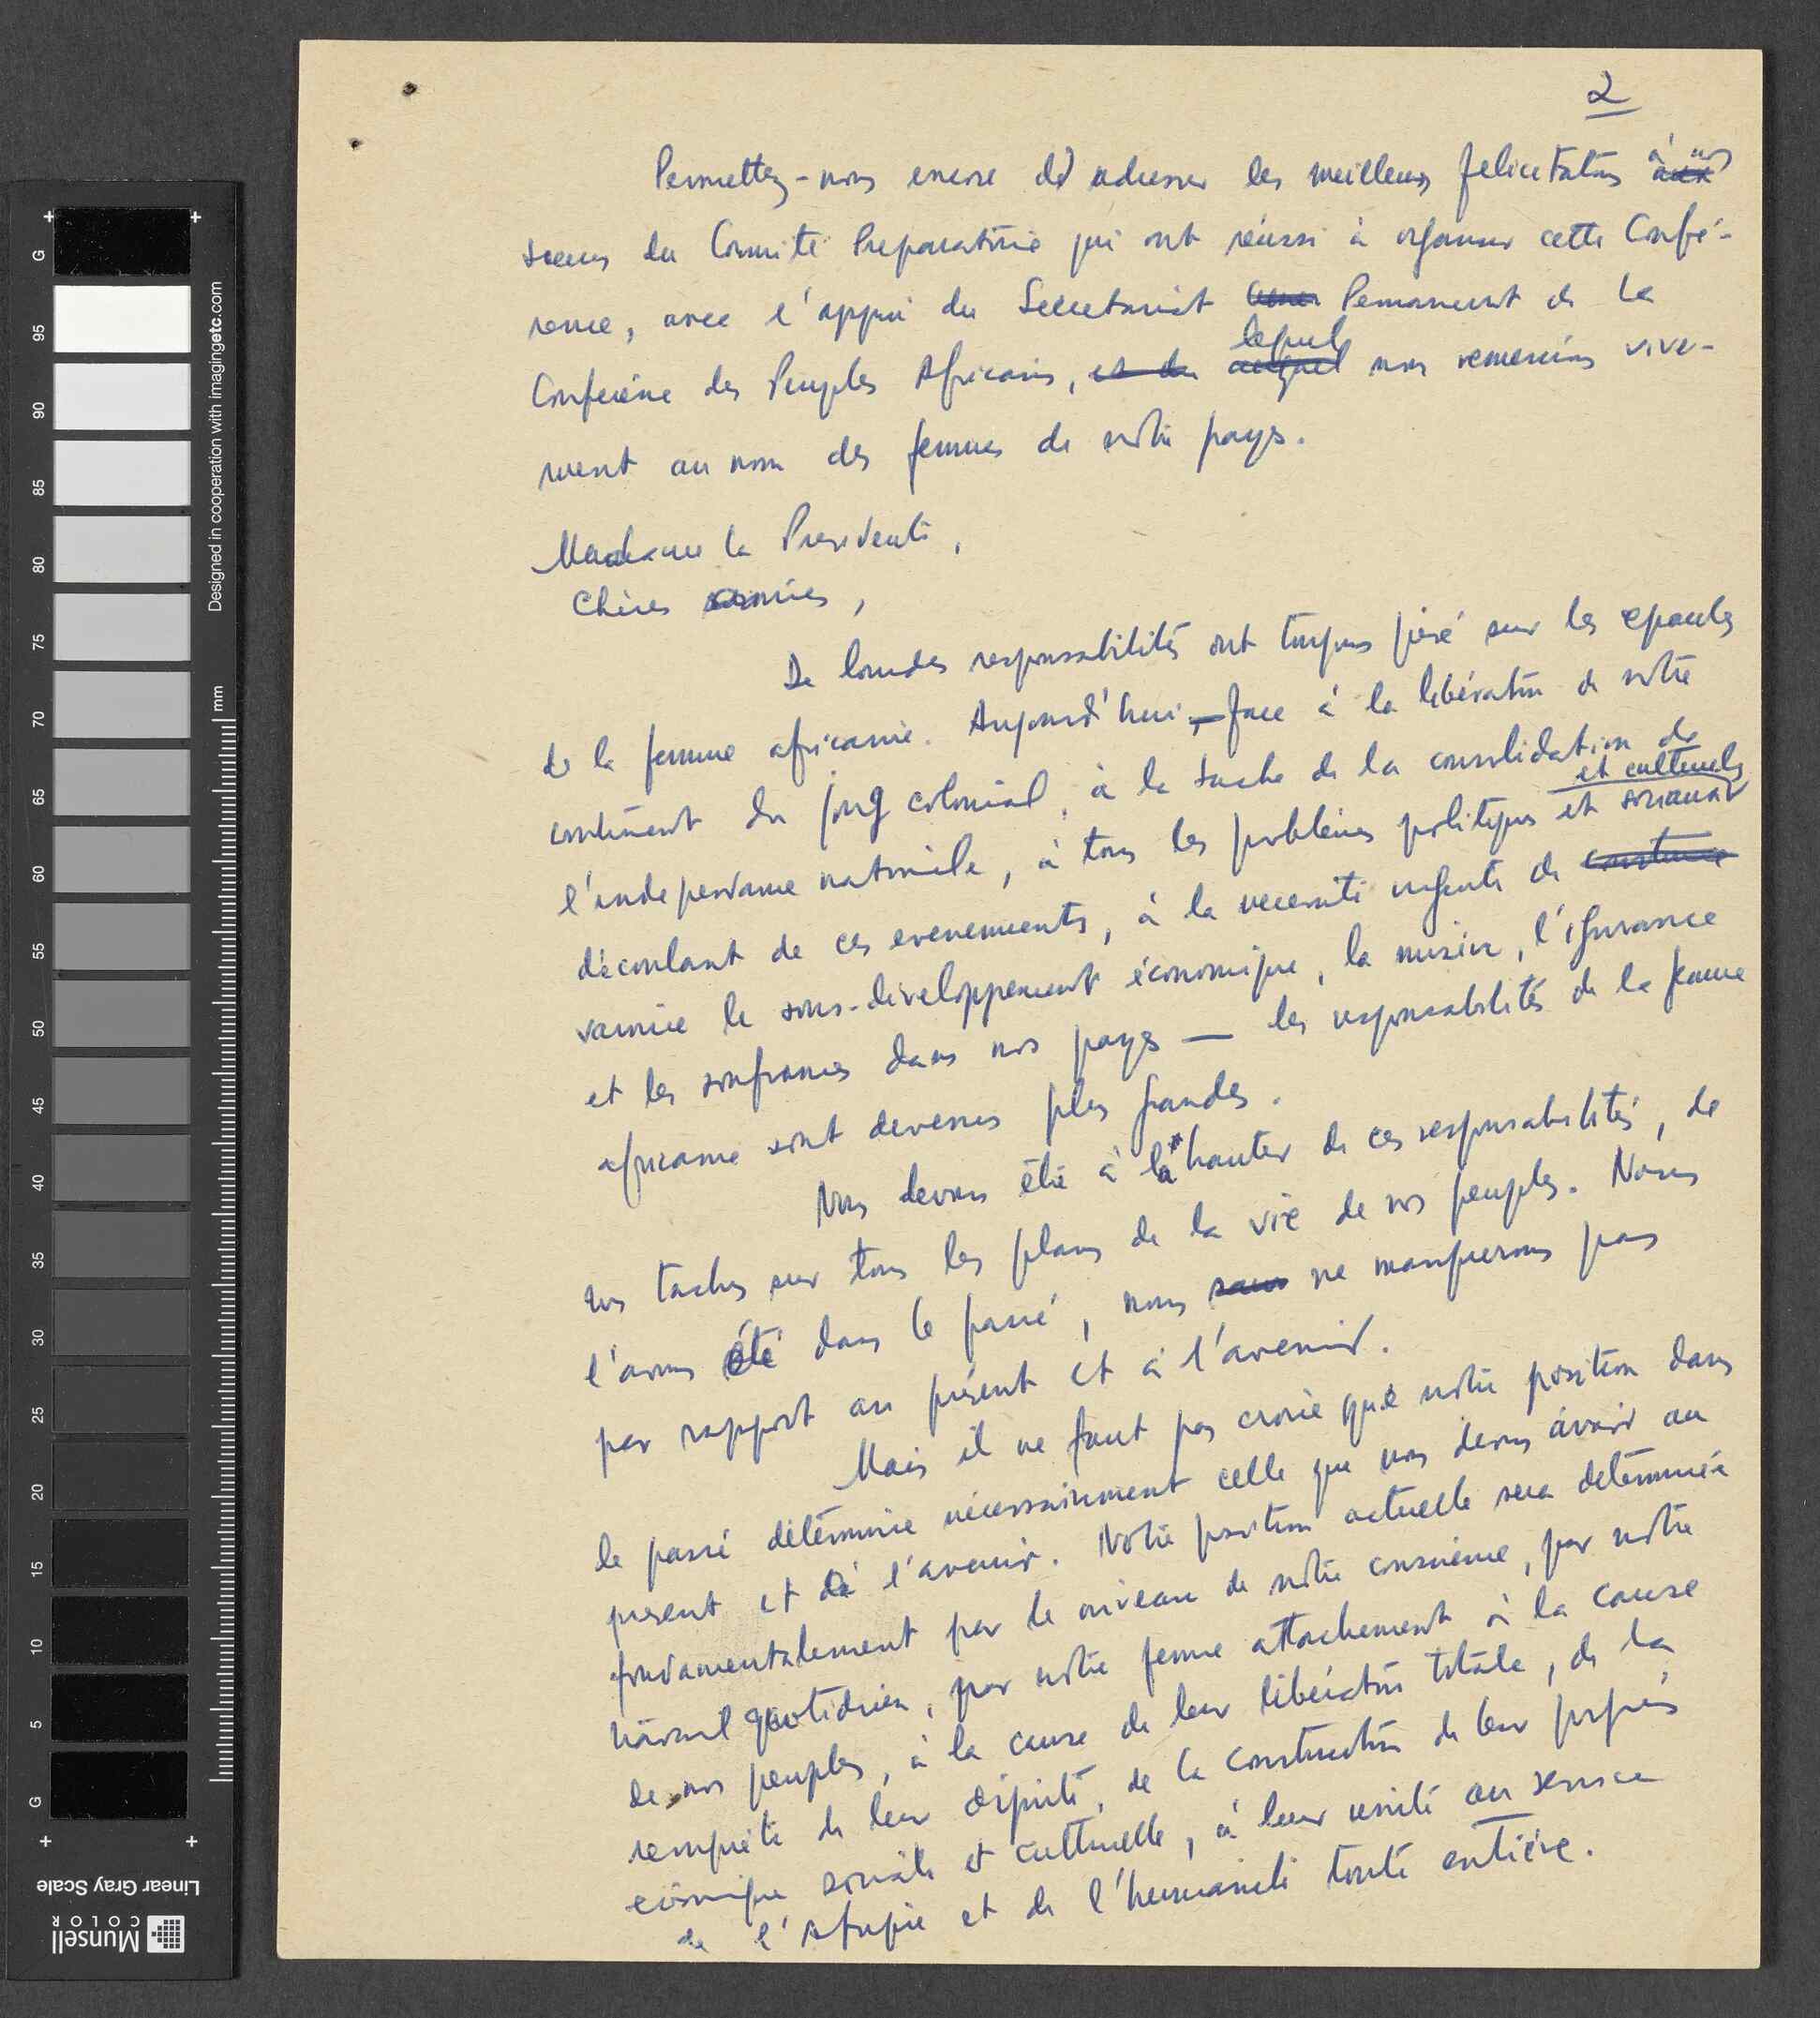 2
Permettez-nous encore d'adresser les meilleurs felicitations à nos
soeurs du Comite Preparatoire qui ont réussi à organiser cette Confé-
rence, avec l'appui du Secretariat Permanent de la
Conference des Peuples Africains, lequel nous remercions vive-
ment au nom des femmes de notre pays.
Madame la Presidente,
Chères amies,
De lourdes responsabilités ont toujours pesé sur les epaules
de la femme africaine. Aujourd'hui, face à la libération de notre
continent du joug colonial, à la tache de la consolidation de
l'independance nationale, à tous les problèmes politiques et sociaux
et culturels
découlant de ces evenements, à la necessité urgente de
vaincre le sous-développement économique, la misère, l'ignorance
et les souffrances dans nos pays — les responsabilités de la femme
africaine sont devenues plus grandes.
Nous devons être à la hauteur de ces responsabilités, de
nos taches sur tous les plans de la vie de nos peuples. Nous
l'avons été dans le passé, nous ne manquerons pas
par rapport au présent et à l'avenir.
Mais il ne faut pas croire que notre position dans
le passé détermine nécessairement celle que nous devons avoir au
present et à l'avenir. Notre position actuelle sera determinée
fondamentalement par le niveau de notre conscience, par notre
travail quotidien, par notre ferme attachement à la cause
de nos peuples, à la cause de leur libération totale, de la
conquête de leur dignité, de la construction de leur progrès
economique sociale et culturelle, à leur unité au service
de l'Afrique et de l'humanité toute entière.
G
95
90
85
80
75
70
65
60
55
50
45
40
35
30
25
20
15
10
5
G
mm
Designed in cooperation with imagingetc.com
Linear Gray Scale
Munsell
COLOR